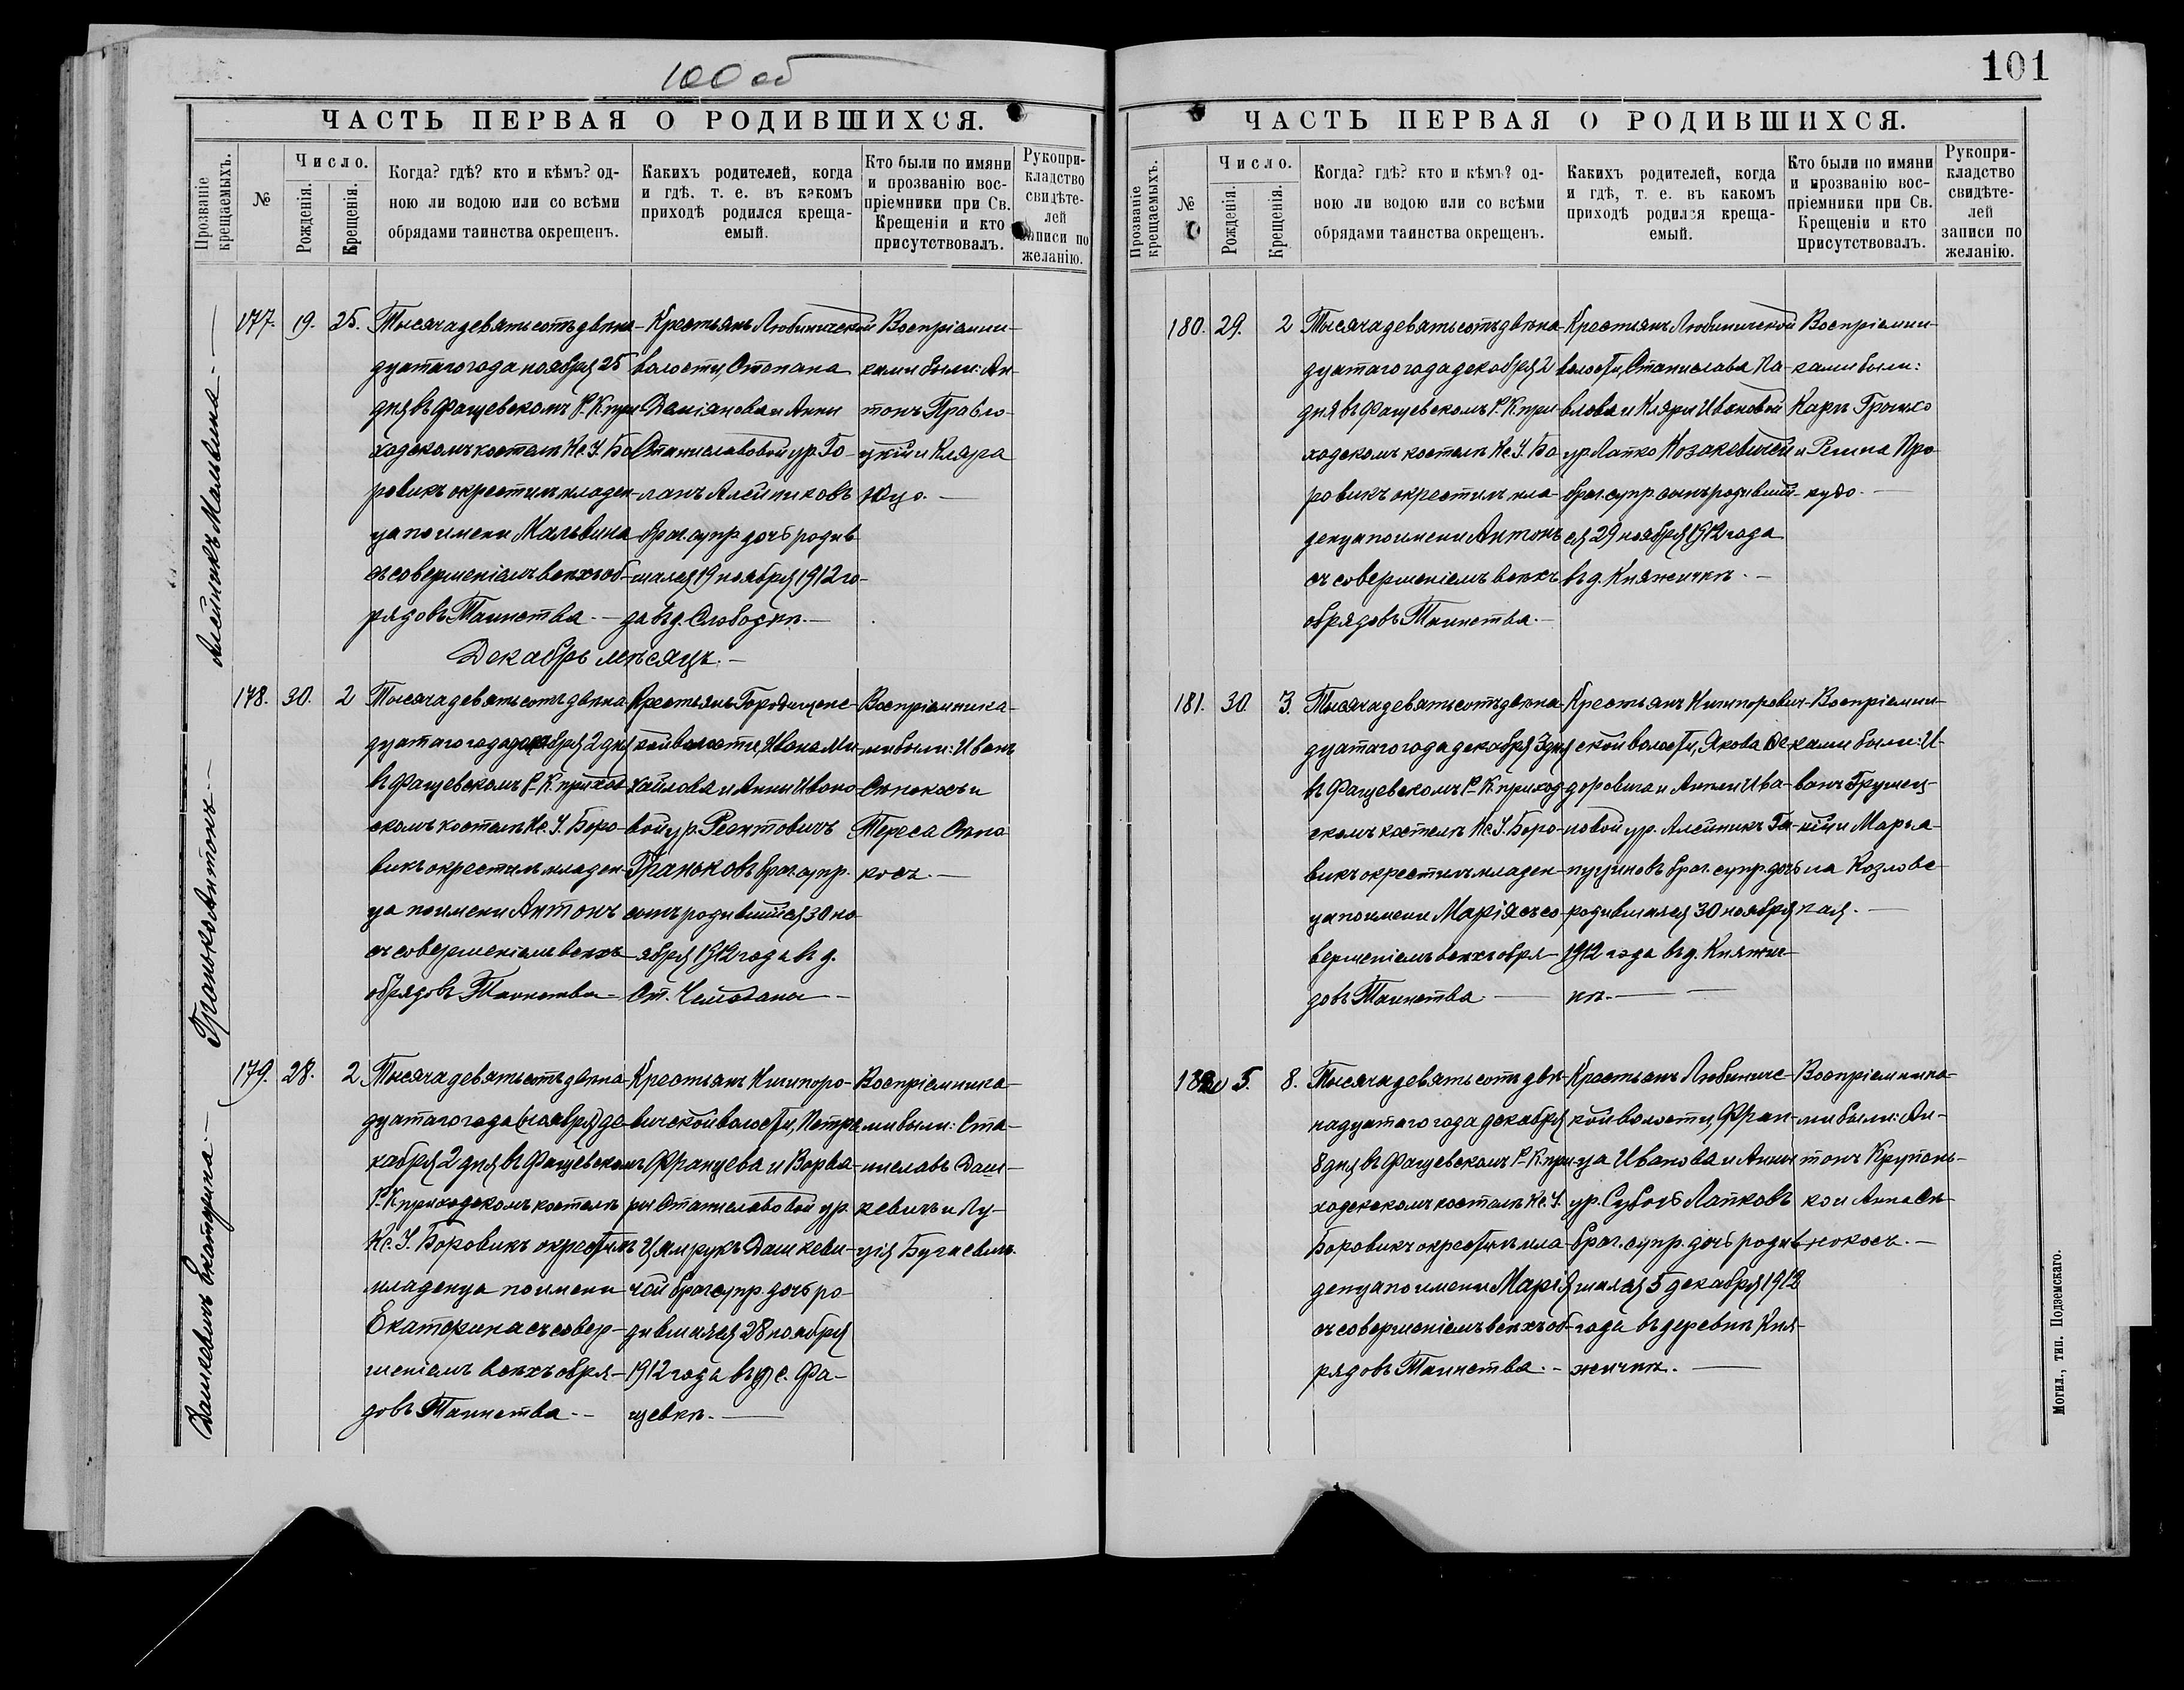 100 об
ЧАСТЬ ПЕРВАЯ О РОДИВШИХСЯ.
Прозваніе крещаемыхъ.
№
Число.
Рожденія.
Крещенія.
Когда? гдѣ? кто и кѣмъ? од-
ною ли водою или со всѣми
обрядами таинства окрещенъ.
Какихъ родителей, когда
и гдѣ. т. е. въ какомъ
приходѣ родился креща-
емый.
Кто были по имяни
и прозванію вос-
пріемники при Св.
Крещеніи и кто
присутствовалъ.
Рукопри-
кладство
свидѣте-
лей
записи по
желанію.
Алейникъ Мальвина.
177. 19. 25.
Тысяча девятьсотъ двѣна-
дцатаго года ноября 25
дня въ Фащевскомъ Р.-К. при
ходскомъ костелѣ Кс. І. Бо
ровикъ окрестилъ младен
ца по имени Мальвина
съ совершеніемъ всѣхъ об-
рядовъ Таинства. —
Крестьянъ Любиничской
волости, Степана
Даміанова и Анны
Станиславовой ур. Го-
ланъ Алейниковъ
брач. супр. дочь родив
шаяся 19 ноября 1912 го-
да въ д. Слободкѣ. —
Воспріемни-
ками были: Ан-
тонъ Правло-
цкій и Кляра
Юцо. —
Декабрь мѣсяцъ. —
Гранько Антонъ. —
178. 30. 2
Тысяча девятьсотъ двѣна
дцатаго года декабря 2 дня
въ Фащевскомъ Р.-К. приход
скомъ костелѣ Кс. І. Боро-
викъ окрестилъ младен
ца по имени Антонъ
съ совершеніемъ всѣхъ
обрядовъ Таинства —
Крестьянъ Городищенс-
кой волости, Ивана Ми
хайлова и Анны Ивано
вой ур. Реентовичъ
Граньковъ брач. супр.
сынъ родившійся 30 но
ября 1912 года въ д.
Ст. Чемоданы —
Воспріемника-
ми были: Иванъ
Сѣнокосъ и
Тереса Сѣно
косъ. —
Дашкевичъ Екатерина. —
179. 28. 2
Тысяча девятьсотъ двѣна-
дцатаго года (ноября) де-
кабря 2 дня въ Фащевскомъ
Р.-К. приходскомъ костелѣ
Кс. І. Боровикъ окрестилъ
младенца по имени
Екатерина съ совер-
шеніемъ всѣхъ обря-
довъ Таинства. —
Крестьянъ Ничипоро-
вичской волости, Петра
Францева и Варва-
ры Станиславовой ур.
Цямрукъ Дашкеви-
чей брач. супр. дочь ро-
дившаяся 28 ноября
1912 года въ с. Фа-
щевкѣ. —
Воспріемника-
ми были: Ста-
ниславъ Даш-
кевичъ и Лу-
ція Бугаевичъ.
101
ЧАСТЬ ПЕРВАЯ О РОДИВШИХСЯ.
Прозваніе крещаемыхъ.
№
Число.
Рожденія.
Крещенія.
Когда? гдѣ? кто и кѣмъ? од-
ною ли водою или со всѣми
обрядами таинства окрещенъ.
Какихъ родителей, когда
и гдѣ, т. е. въ какомъ
приходѣ родился креща-
емый.
Кто были по имяни
и прозванію вос-
пріемники при Св.
Крещеніи и кто
присутствовалъ.
Рукопри-
кладство
свидѣте-
лей
записи по
желанію.
180. 29. 2
Тысяча девятьсотъ двѣна-
дцатаго года декабря 2
дня въ Фащевскомъ Р.-К. при
ходскомъ костелѣ Кс. І. Бо
ровикъ окрестилъ мла-
денца по имени Антонъ
съ совершеніемъ всѣхъ
обрядовъ Таинства. —
Крестьянъ Любиничской
волости, Станислава Па-
влова и Кляры Ивановой
ур. Лапко Козакевичей
брач. супр. сынъ родивший-
ся 29 ноября 1912 года
въ д. Княжичкѣ. —
Воспріемни-
ками были:
Карлъ Громко
и Регина Про
кудо. —
181. 30. 3.
Тысяча девятьсотъ двѣна-
дцатаго года декабря 3 дня
въ Фащевскомъ Р.-К. приход
скомъ костелѣ Кс. І. Боро-
викъ окрестилъ младен-
ца по имени Марія съ со-
вершеніемъ всѣхъ обря-
довъ Таинства —
Крестьянъ Ничипорович-
ской волости, Якова Ѳе-
доровича и Анны Ива-
новой ур. Алейникъ
брач. супр. дочь
родившаяся 30 ноября
1912 года въ д. Княжич
кѣ. —
Воспріемни-
ками были: И-
ванъ Грушец-
кій и Марья-
на Козловс
кая. —
182 5. 8.
Тысяча девятьсотъ двѣ-
надцатаго года декабря
8 дня въ Фащевскомъ Р.-К. при-
ходскомъ костелѣ Кс. І.
Боровикъ окрестилъ мла-
денца по имени Марія
съ совершеніемъ всѣхъ об-
рядовъ Таинства. —
Крестьянъ Любиничс-
кой волости, Фран-
ца Иванова и Анны
ур. Суботь Лапковъ
брач. супр. дочь родив
шаяся 5 декабря 1912
года въ деревнѣ Кня-
жичкѣ. —
Воспріемника-
ми были: Ан-
тонъ Крупень-
ко и Анна Сѣ-
нокосъ. —
Могил., тип. Подземскаго.